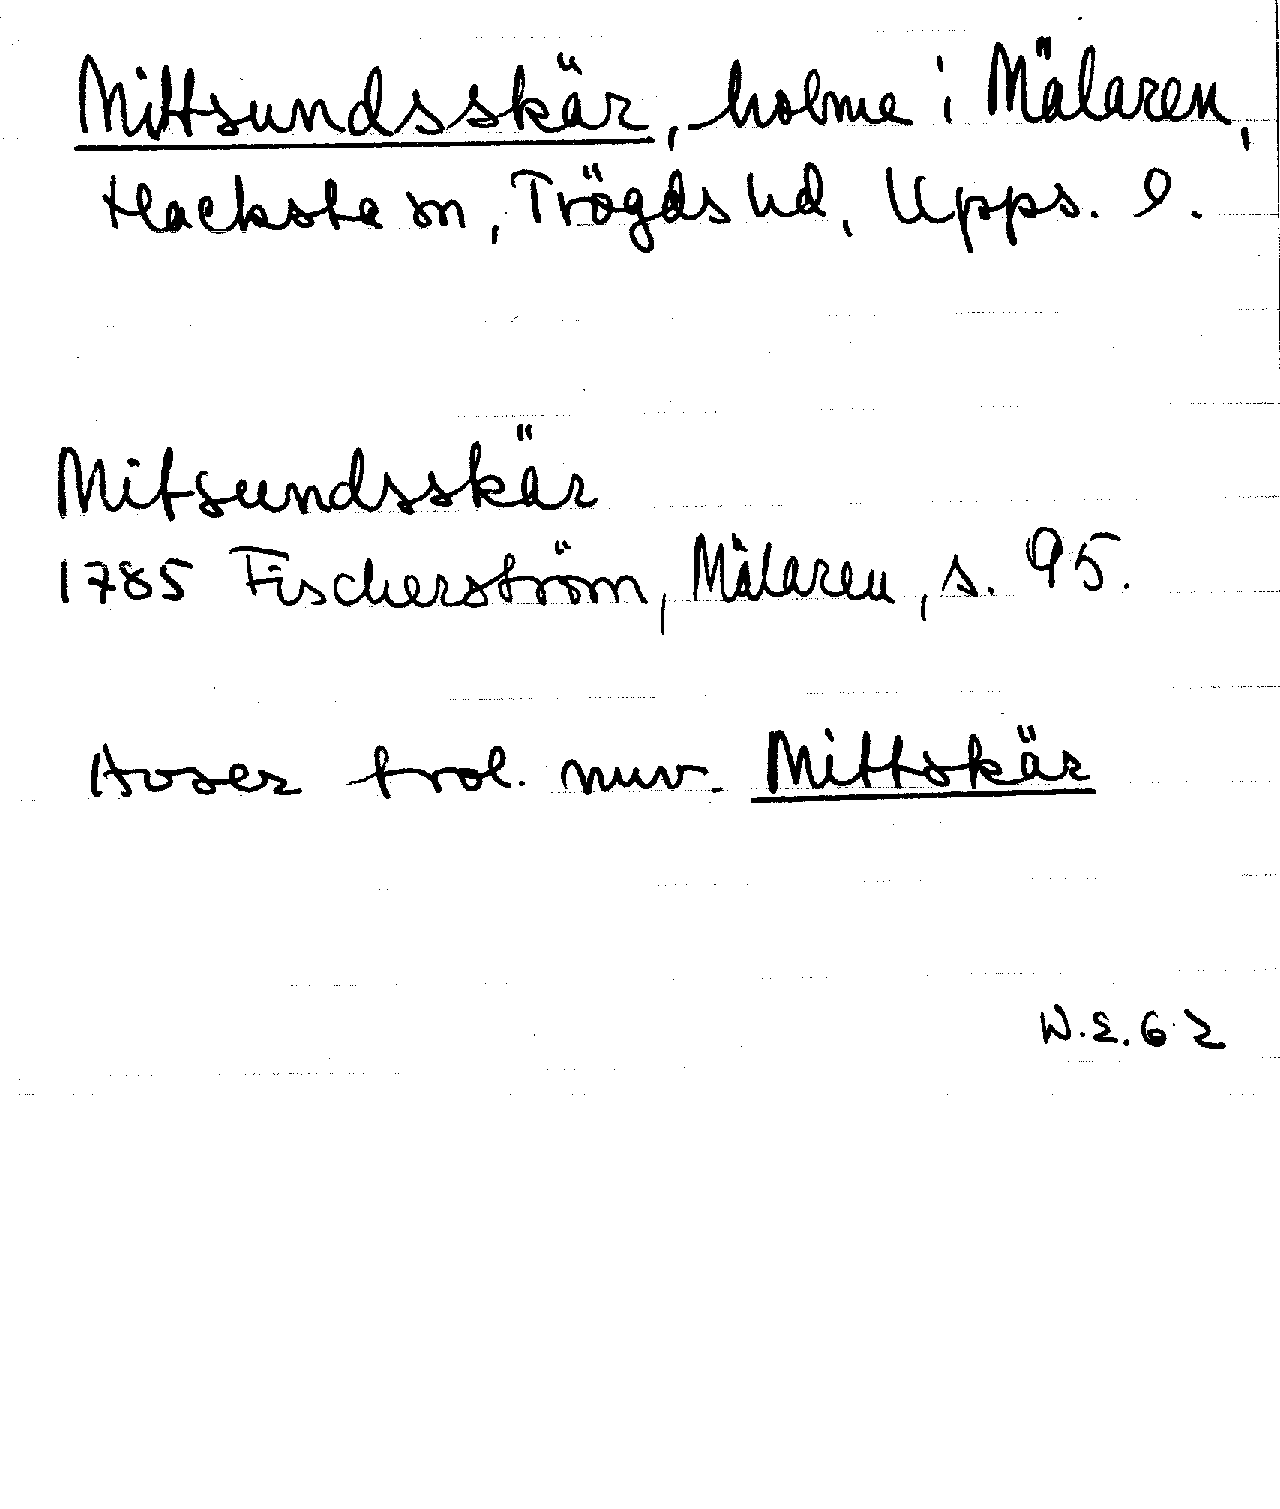 Mittsundsskär, holme i Mälaren,
Hacksta sn, Trögds hd, Upps. l.
Mitsundsskär
1785 Fischerström, Mälaren, s. 95.
Avser trol. nuv. Mittskär
W.E. 62